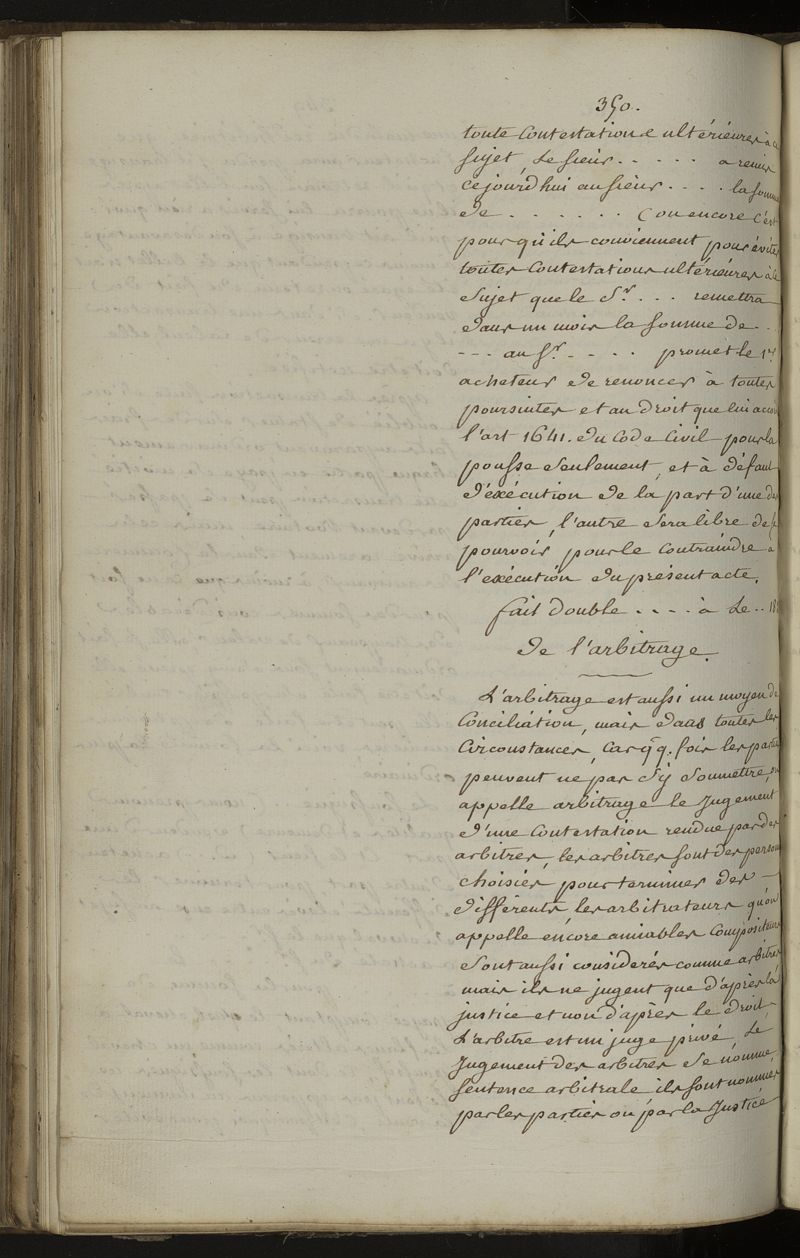 350.
toute Contestations ultérieures à ce
sujet, le sieur . . . . . a remis
cejourd'hui au sieur . . . . la somme
de . . . . . . (ou encore c'est
pourquoi ils conviennent pour éviter
toutes Contestations ultérieures à ce
sujet que le Sr. . . . remettra
dans un mois la somme de . .
- - - au Sr. - . . . promet le 1er
acheteur de renoncer à toutes
poursuites et au droit que lui accor
l'art 1641. du Code Civil pour la
pousse seulement, et à défaut
d'éxécution de la part d'une des
parties, l'autre sera libre de se
pourvoir pour le contraindre à
l'exécution du présent acte.
fait double . . . . à Le .. 18
De l'arbitrage.
L'arbitrage est aussi un moyen de
Conciliation, mais dans toutes les
Circonstances, Car qq. fois les parties
peuvent ne pas s'y soumettre, on
appelle arbitrage le Jugement
d'une Contestation rendue par des
arbitres, les arbitres sont des person
choisies, pour terminer des —
différents, les arbitrateurs qu'on
appelle encore amiables Compositeurs
sont aussi considerés comme arbitres
mais ils ne jugent que d'après la
justice et non d'après le droit
L'arbitre est un juge privé, Le
Jugement des arbitres se nomme
sentence arbitrale ils sont nommés
par les parties ou par la Justice